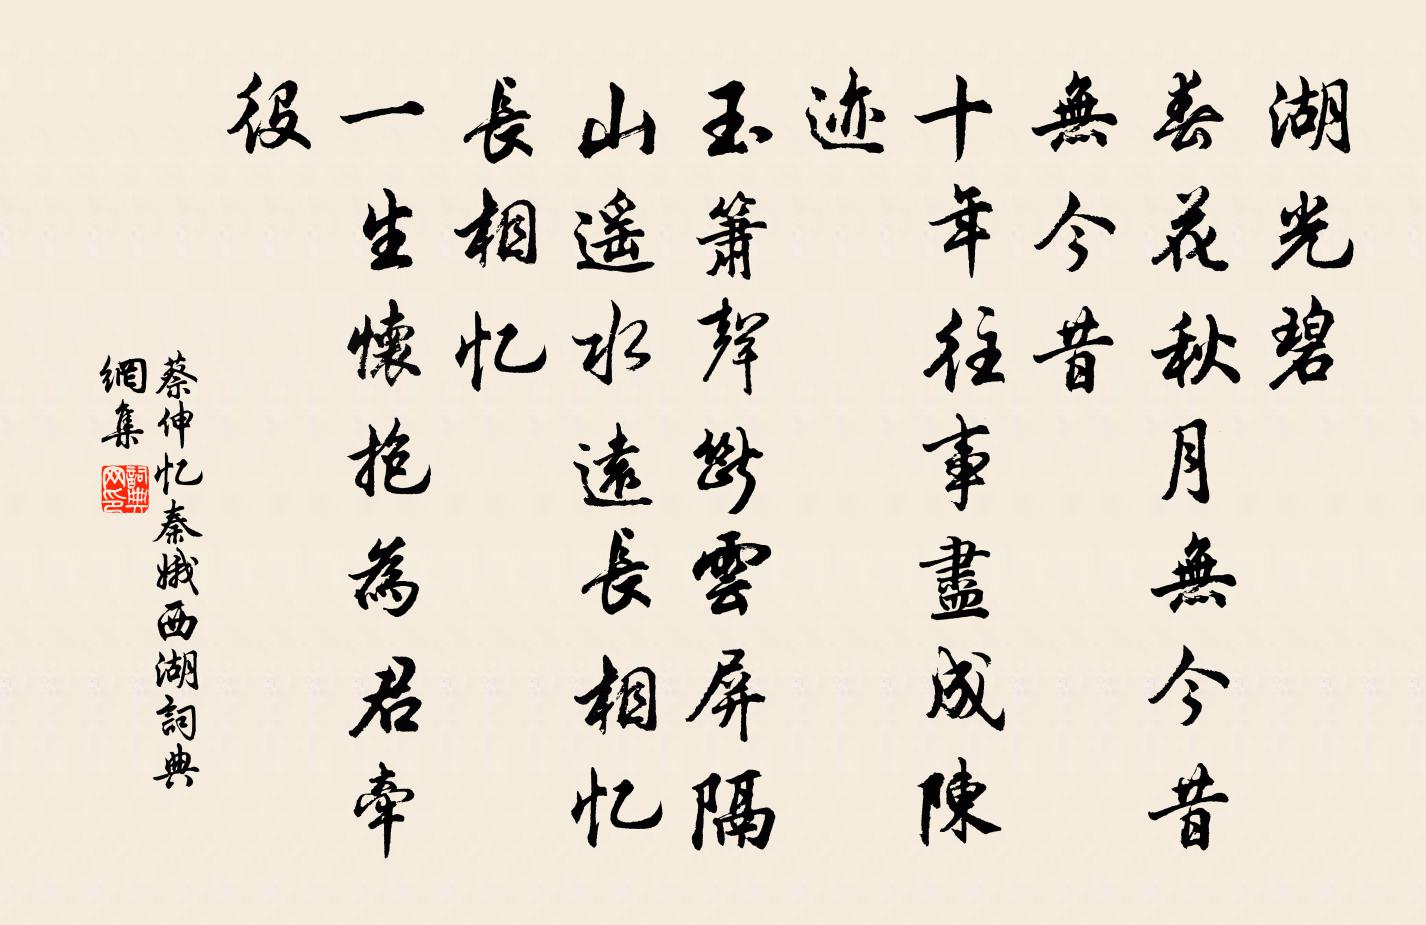 湖光碧
春花秋月無今昔
無今昔
十年往事盡成陳
迹
玉簫聲斷雲屏隔
山遙水遠長相忆
長相忆
一生懷抱為君牽
役
蔡伸忆秦娥西湖詞典
網集
詞典
网印